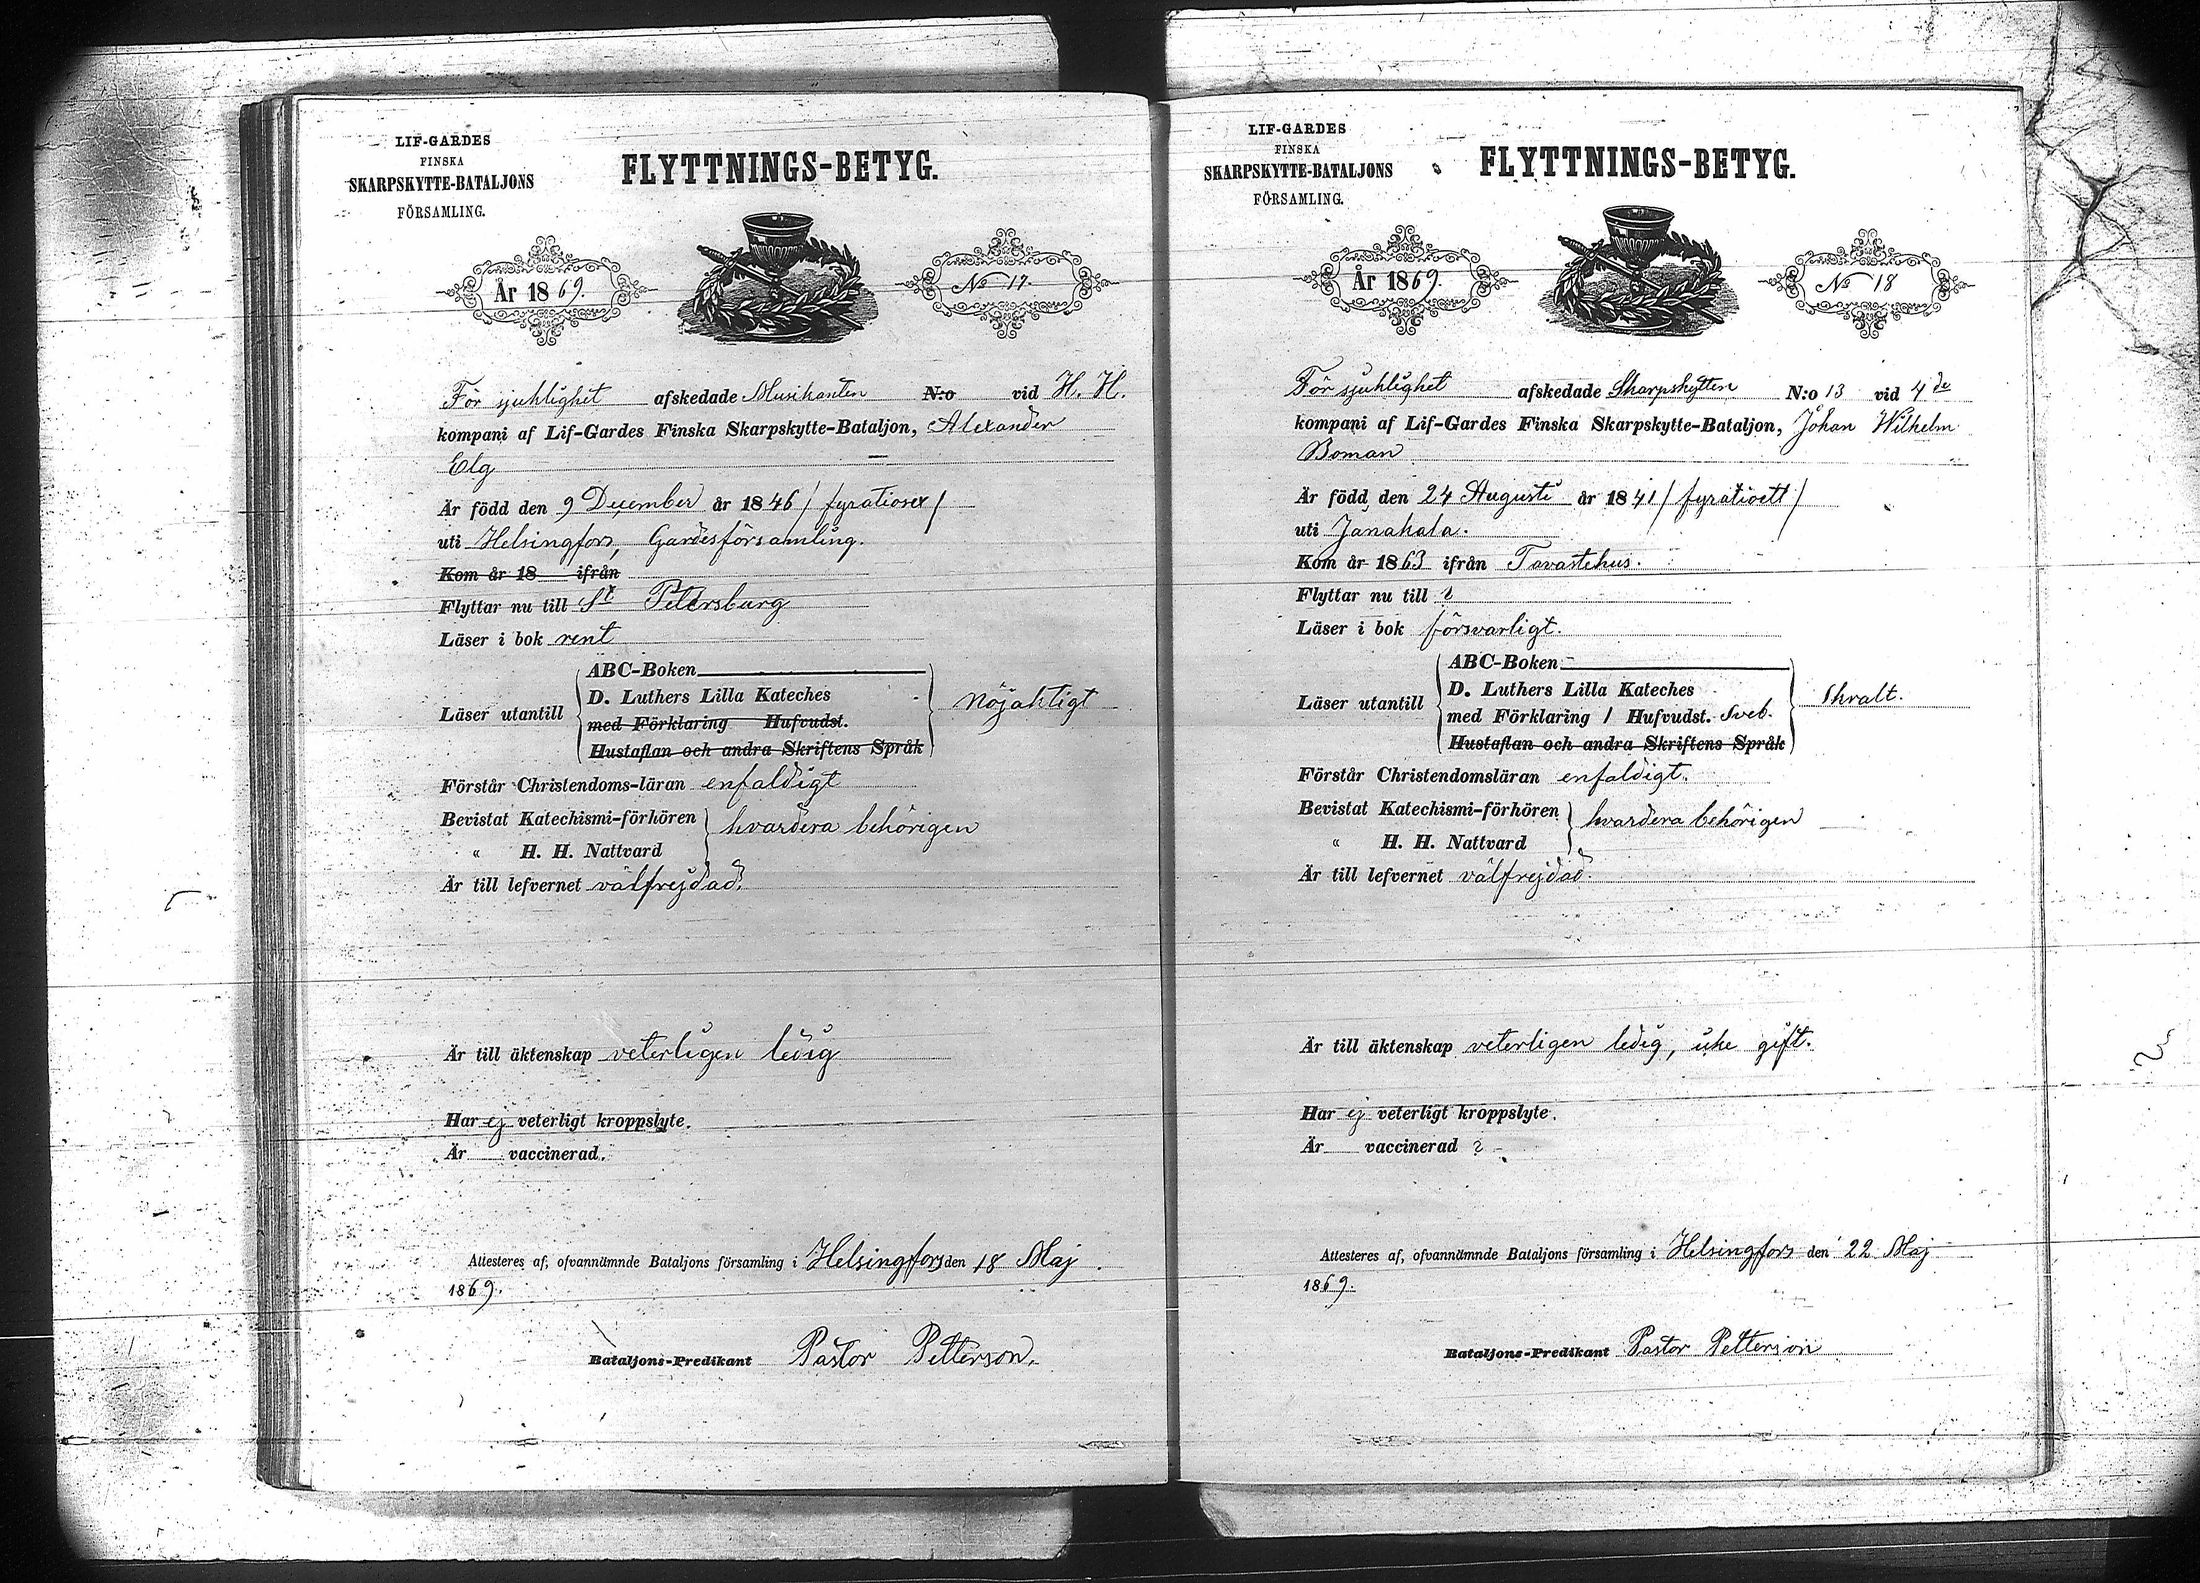 LIF-GARDES
FINSKA
SKARPSKYTTE-BATALJONS
FÖRSAMLING.
FLYTTNINGS-BETYG.
År 1869.
No 17.
För sjuklighet afskedade Musikanten N:o vid H. H.
kompani af Lif-Gardes Finska Skarpskytte-Bataljon, Alexander
Elg
Är född den 9 December år 1846 / fyratiosex /
uti Helsingfors, Gardesförsamling.
Kom år 18 ifrån
Flyttar nu till St Petersburg
Läser i bok rent
ABC-Boken
Läser utantill D. Luthers Lilla Kateches nöjaktigt
med Förklaring Hufvudst.
Hustaflan och andra Skriftens Språk
Förstår Christendoms-läran enfaldigt
Bevistat Katechismi-förhören hvardera behörigen
" H. H. Nattvard
Är till lefvernet välfrejdad.
Är till äktenskap veterligen ledig
Har ej veterligt kroppslyte.
Är vaccinerad.
Attesteras af, ofvannämnde Bataljons församling i Helsingfors den 18 Maj
1869.
Bataljons-Predikant Pastor Petterson.
LIF-GARDES
FINSKA
SKARPSKYTTE-BATALJONS
FÖRSAMLING.
FLYTTNINGS-BETYG.
År 1869.
No 18
För sjuklighet afskedade Skarpskytten N:o 13 vid 4de
kompani af Lif-Gardes Finska Skarpskytte-Bataljon, Johan Wilhelm
Boman
Är född den 24 Augusti år 1841 / fyratioett /
uti Janakala.
Kom år 1863 ifrån Tavastehus.
Flyttar nu till ?
Läser i bok försvarligt.
ABC-Boken
Läser utantill D. Luthers Lilla Kateches skralt.
med Förklaring 1 Hufvudst. Sveb.
Hustaflan och andra Skriftens Språk
Förstår Christendomsläran enfaldigt.
Bevistat Katechismi-förhören hvardera behörigen
" H. H. Nattvard
Är till lefvernet välfrejdad.
Är till äktenskap veterligen ledig, icke gift.
Har ej veterligt kroppslyte.
Är vaccinerad ?
Attesteres af, ofvannämnde Bataljons församling i Helsingfors den 22 Maj
1869.
Bataljons-Predikant Pastor Petterson